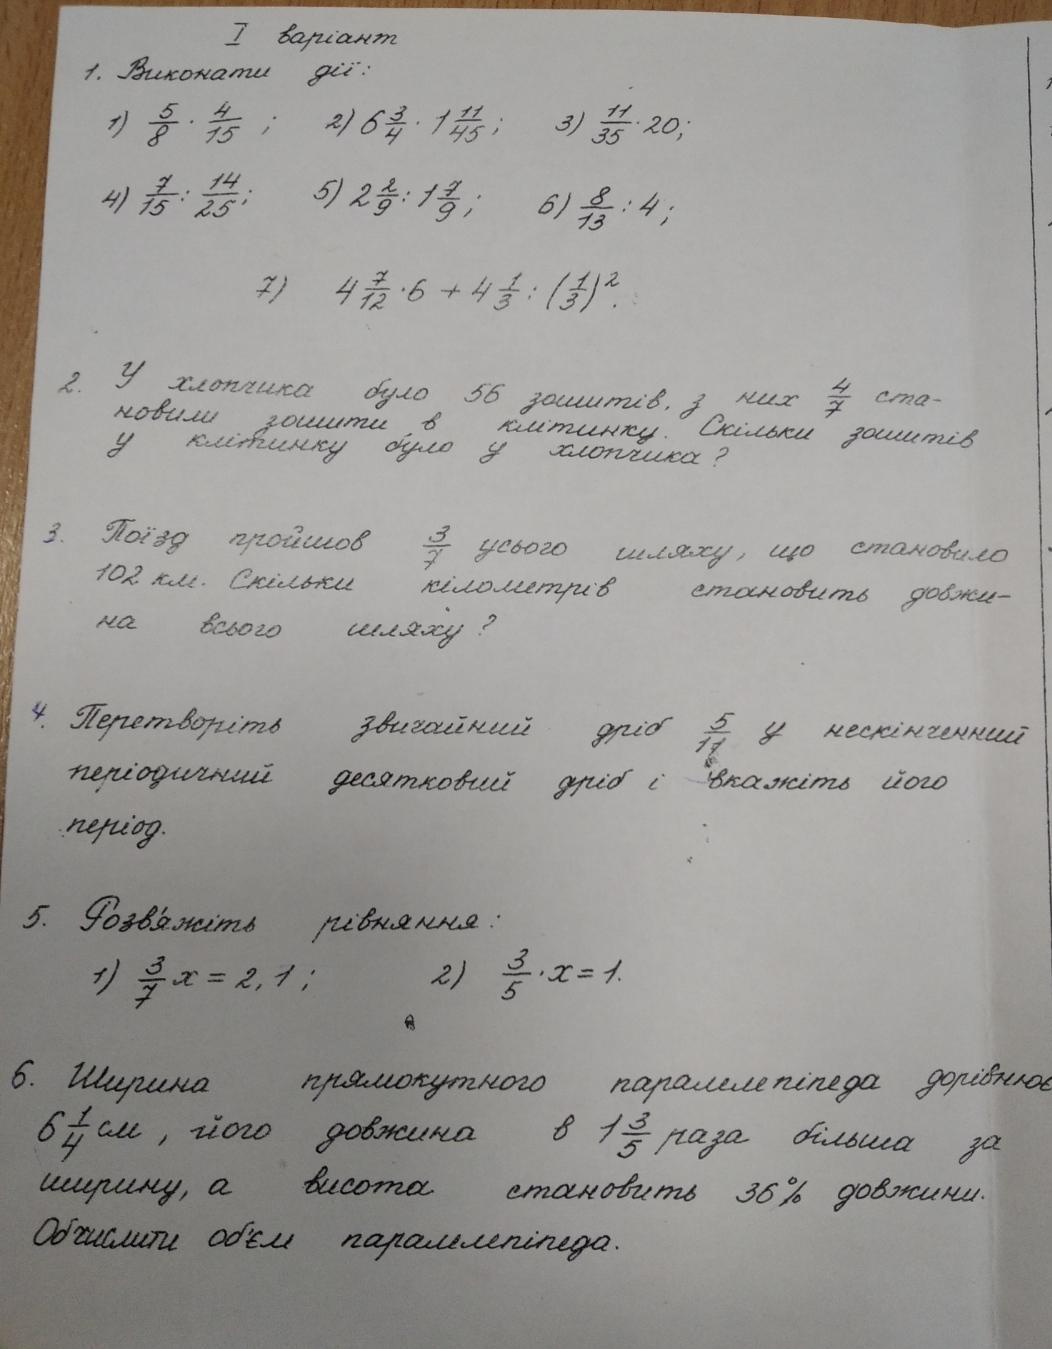 I варіант
1. Виконати дії:
1) 5/8 · 4/15 ; 2) 6 3/4 · 1 11/45 ; 3) 11/35 · 20;
4) 7/15 : 14/25 ; 5) 2 2/9 : 1 7/9 ; 6) 8/13 : 4 ;
7) 4 7/12 · 6 + 4 1/3 : (1/3)².
2. У хлопчика було 56 зошитів, з них 4/7 ста-
новили зошити в клітинку. Скільки зошитів
у клітинку було у хлопчика?
3. Поїзд пройшов 3/7 усього шляху, що становило
102 км. Скільки кілометрів становить довжи-
на всього шляху?
4. Перетворіть звичайний дріб 5/11 у нескінченний
періодичний десятковий дріб і вкажіть його
період.
5. Розв'яжіть рівняння:
1) 3/7 x = 2,1 ; 2) 3/5 · x = 1.
6. Ширина прямокутного паралелепіпеда дорівнює
6 1/4 см, його довжина в 1 3/5 раза більша за
ширину, а висота становить 36% довжини.
Обчислити об'єм паралелепіпеда.